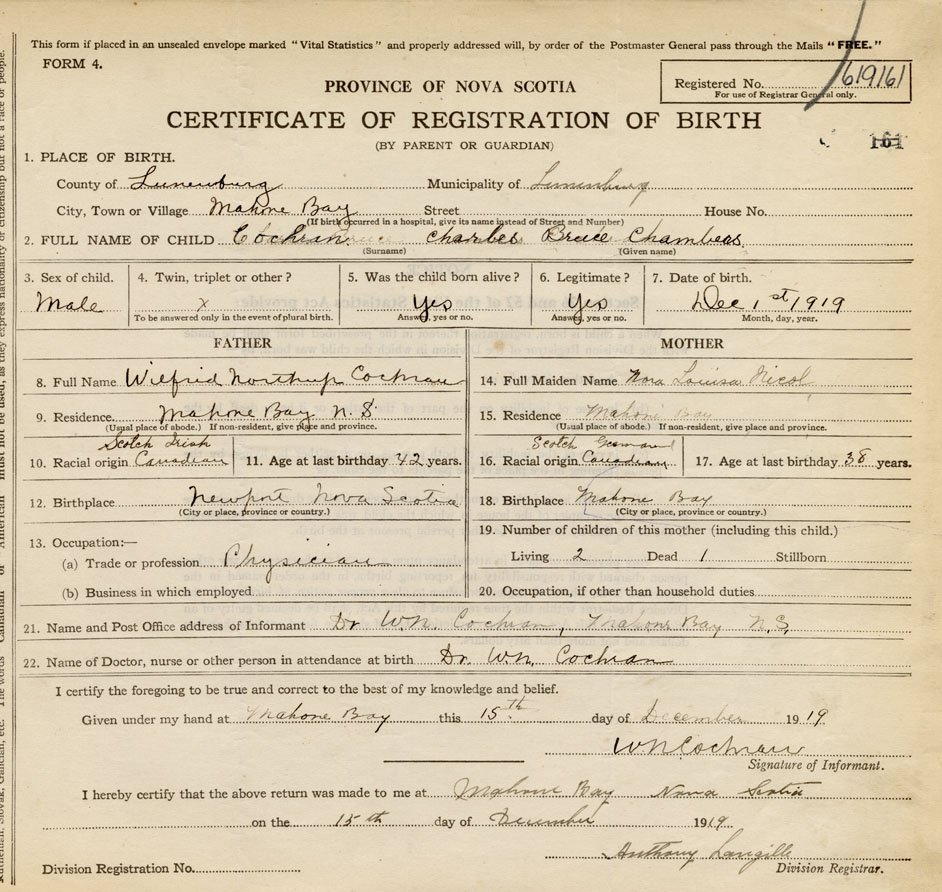 This form if placed in an unsealed envelope marked "Vital Statistics" and properly addressed will, by order of the Postmaster General pass through the Mails "FREE."
FORM 4.
Registered No. 619161
For use of Registrar General only.
PROVINCE OF NOVA SCOTIA
CERTIFICATE OF REGISTRATION OF BIRTH
(BY PARENT OR GUARDIAN)
161
1. PLACE OF BIRTH.
County of Lunenburg Municipality of Lunenburg
City, Town or Village Mahone Bay Street House No.
(If birth occurred in a hospital, give its name instead of Street and Number)
2. FULL NAME OF CHILD Cochran Charles Bruce Chambers
(Surname) (Given name)
3. Sex of child. 4. Twin, triplet or other? 5. Was the child born alive? 6. Legitimate? 7. Date of birth.
Male x Yes Yes Dec 1st 1919
To be answered only in the event of plural birth. Answer, yes or no. Answer, yes or no. Month, day, year.
FATHER
8. Full Name Wilfrid Northrup Cochran
9. Residence. Mahone Bay N.S
(Usual place of abode.) If non-resident, give place and province.
Scotch Irish
10. Racial origin Canadian 11. Age at last birthday 42 years.
12. Birthplace Newport Nova Scotia
(City or place, province or country.)
13. Occupation:—
(a) Trade or profession Physician
(b) Business in which employed
MOTHER
14. Full Maiden Name Nora Louisa Nicol
15. Residence Mahone Bay
(Usual place of abode.) If non-resident, give place and province.
Scotch German
16. Racial origin Canadian 17. Age at last birthday 38 years.
18. Birthplace Mahone Bay
(City or place, province or country.)
19. Number of children of this mother (including this child.)
Living 2 Dead 1 Stillborn
20. Occupation, if other than household duties
21. Name and Post Office address of Informant Dr W.N. Cochran, Mahone Bay N.S.
22. Name of Doctor, nurse or other person in attendance at birth Dr. W.N. Cochran
I certify the foregoing to be true and correct to the best of my knowledge and belief.
Given under my hand at Mahone Bay this 15th day of December 1919
WN Cochran
Signature of Informant.
I hereby certify that the above return was made to me at Mahone Bay Nova Scotia
on the 15th day of December 1919.
Anthony Langille
Division Registration No. Division Registrar.